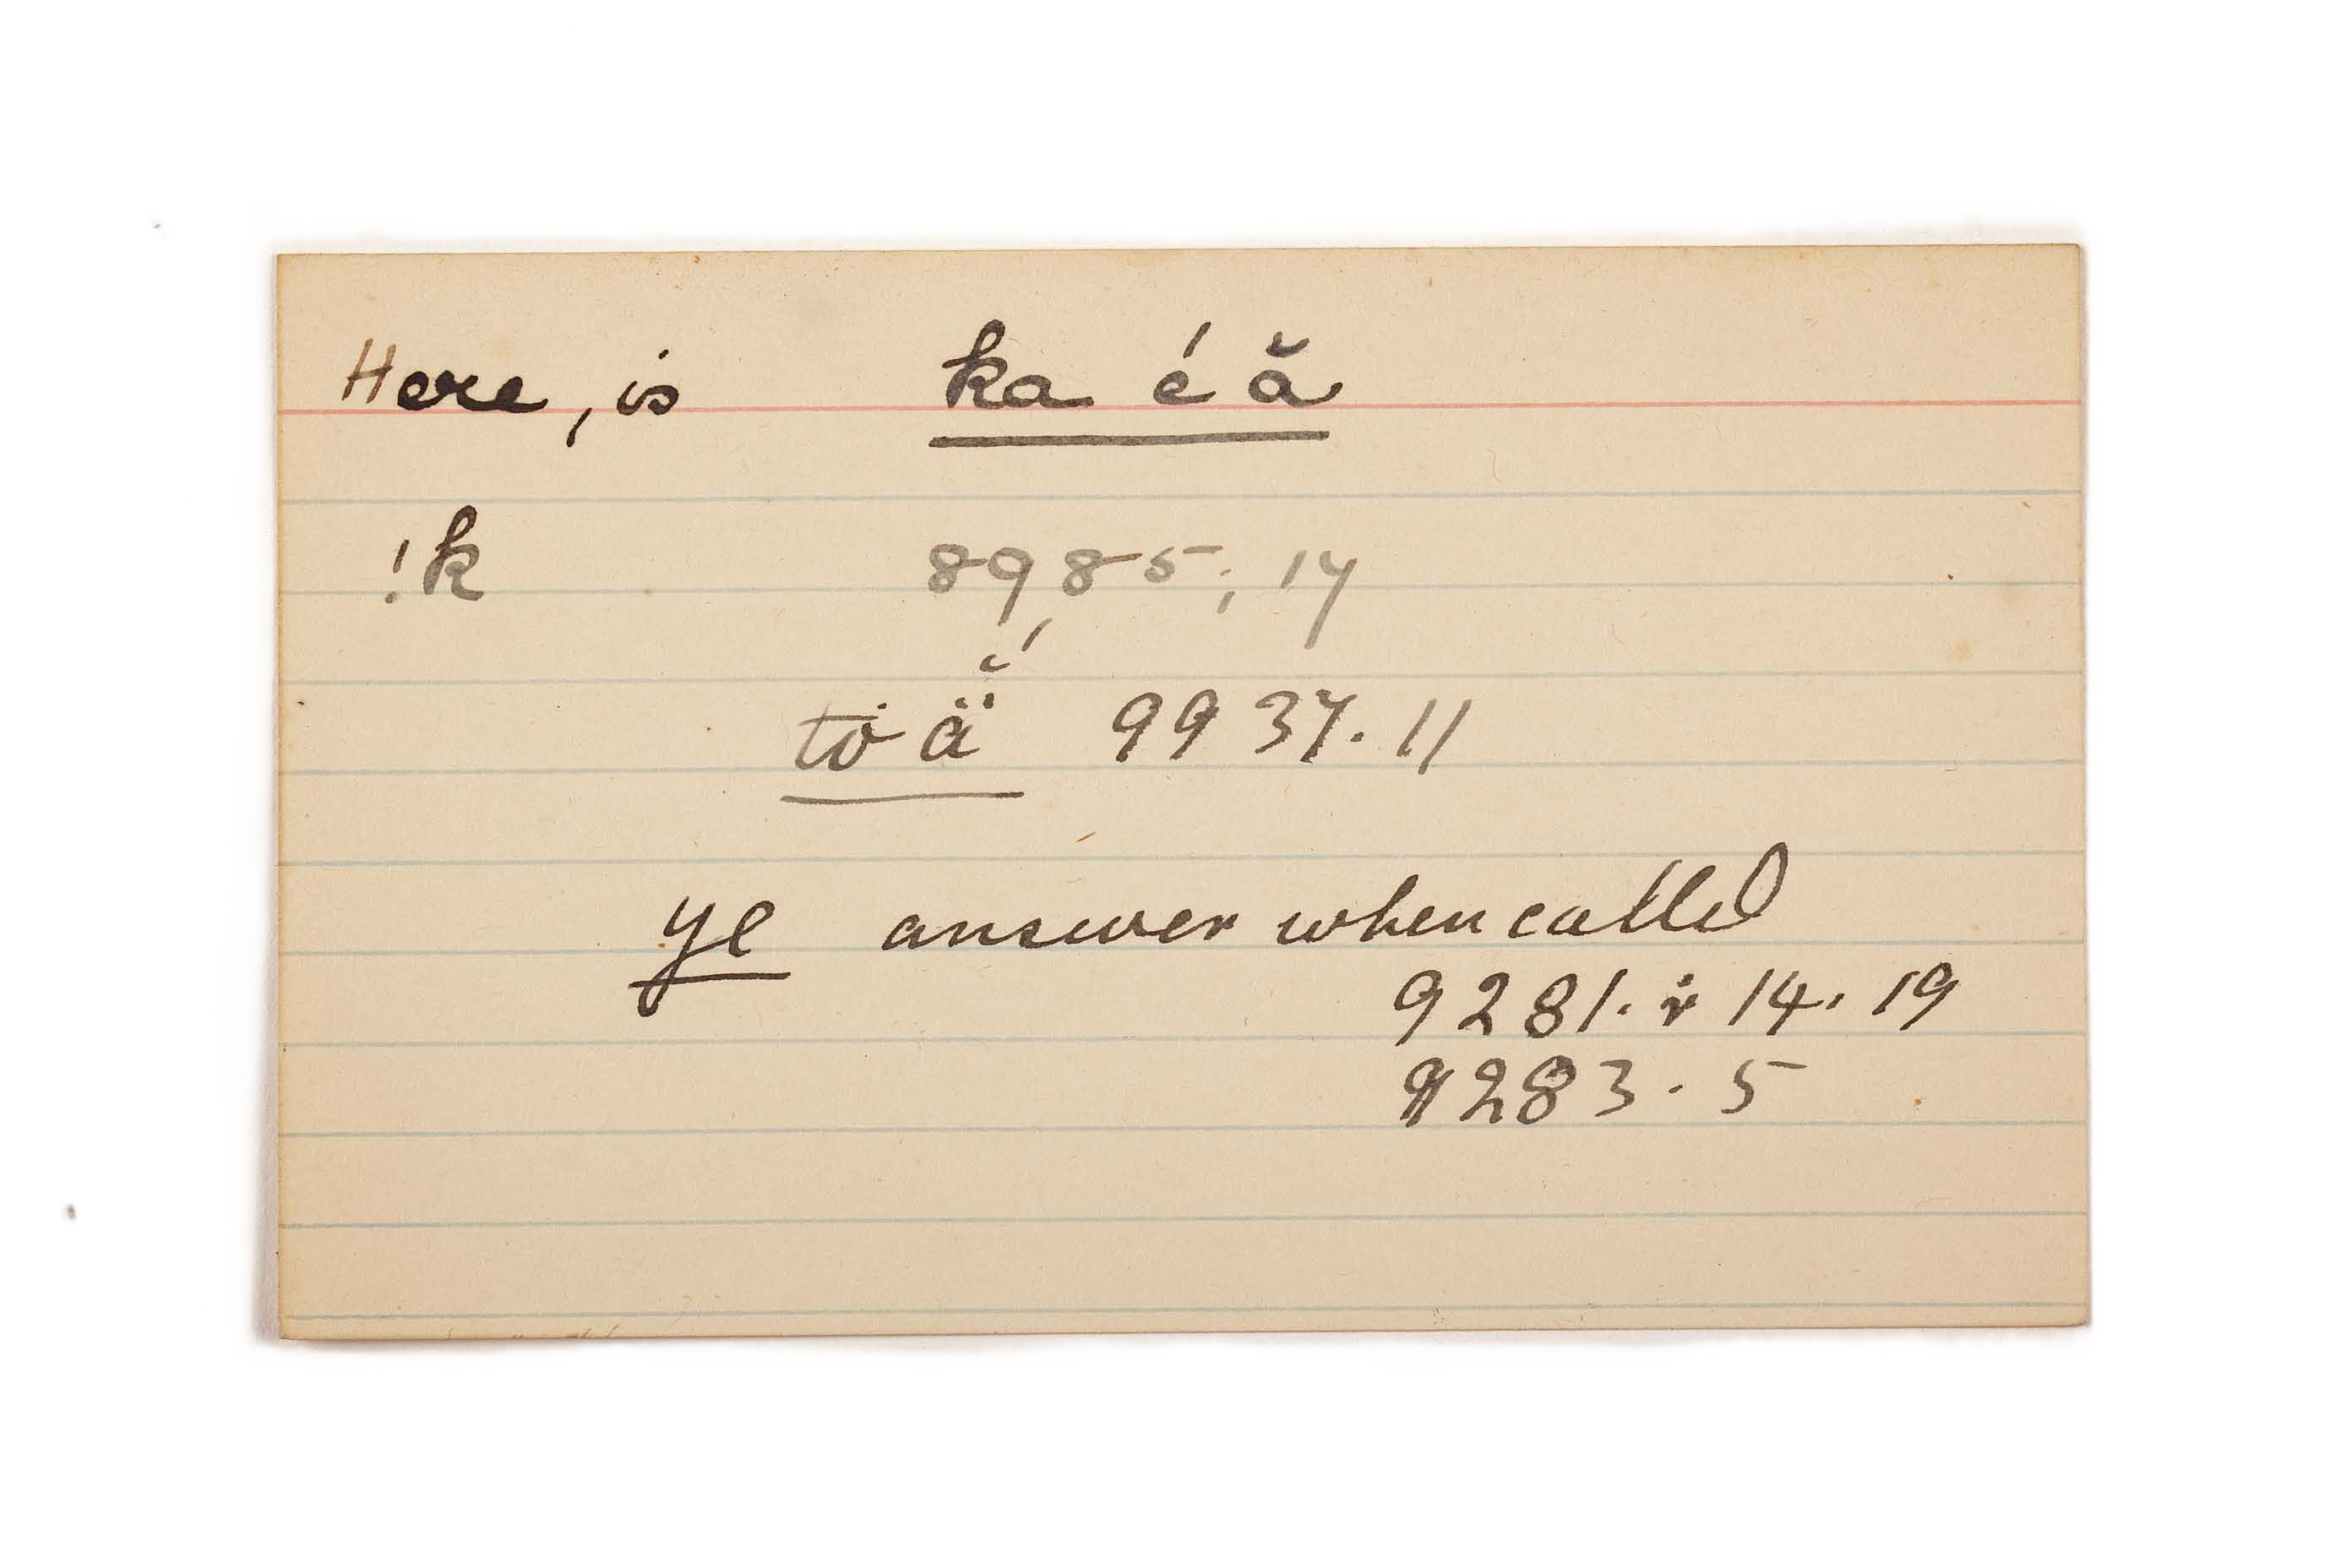 Here, is ka é ă
!k 8985; 17
tȯ ä̆́ 9937. 11
ye answer when called
9281. r 14. 19
9283. 5